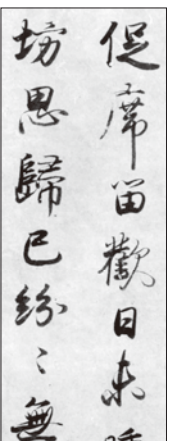 促席留歡日未
坊思歸已紛〻無